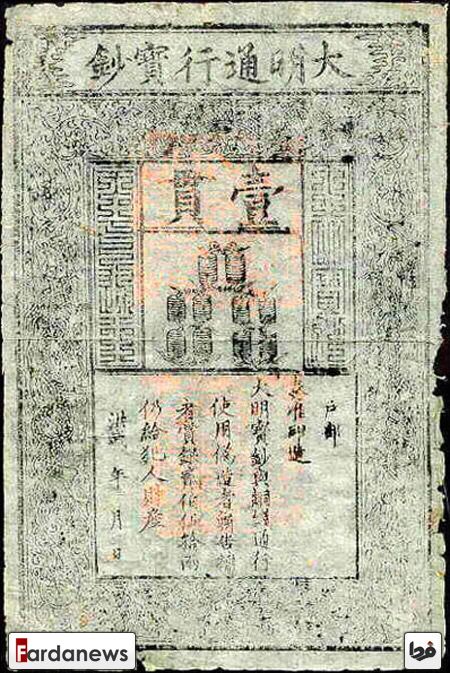 大明通行寶鈔
壹貫
戶部
奏准印造
大明寶鈔與銅錢通行
使用偽造者斬告捕
者賞銀貳佰伍拾兩
仍給犯人財產
洪武 年 月 日
Fardanews
فردا